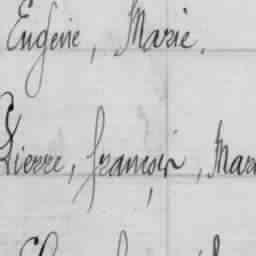 Eugène, Marie.
Pierre, françois, Mari